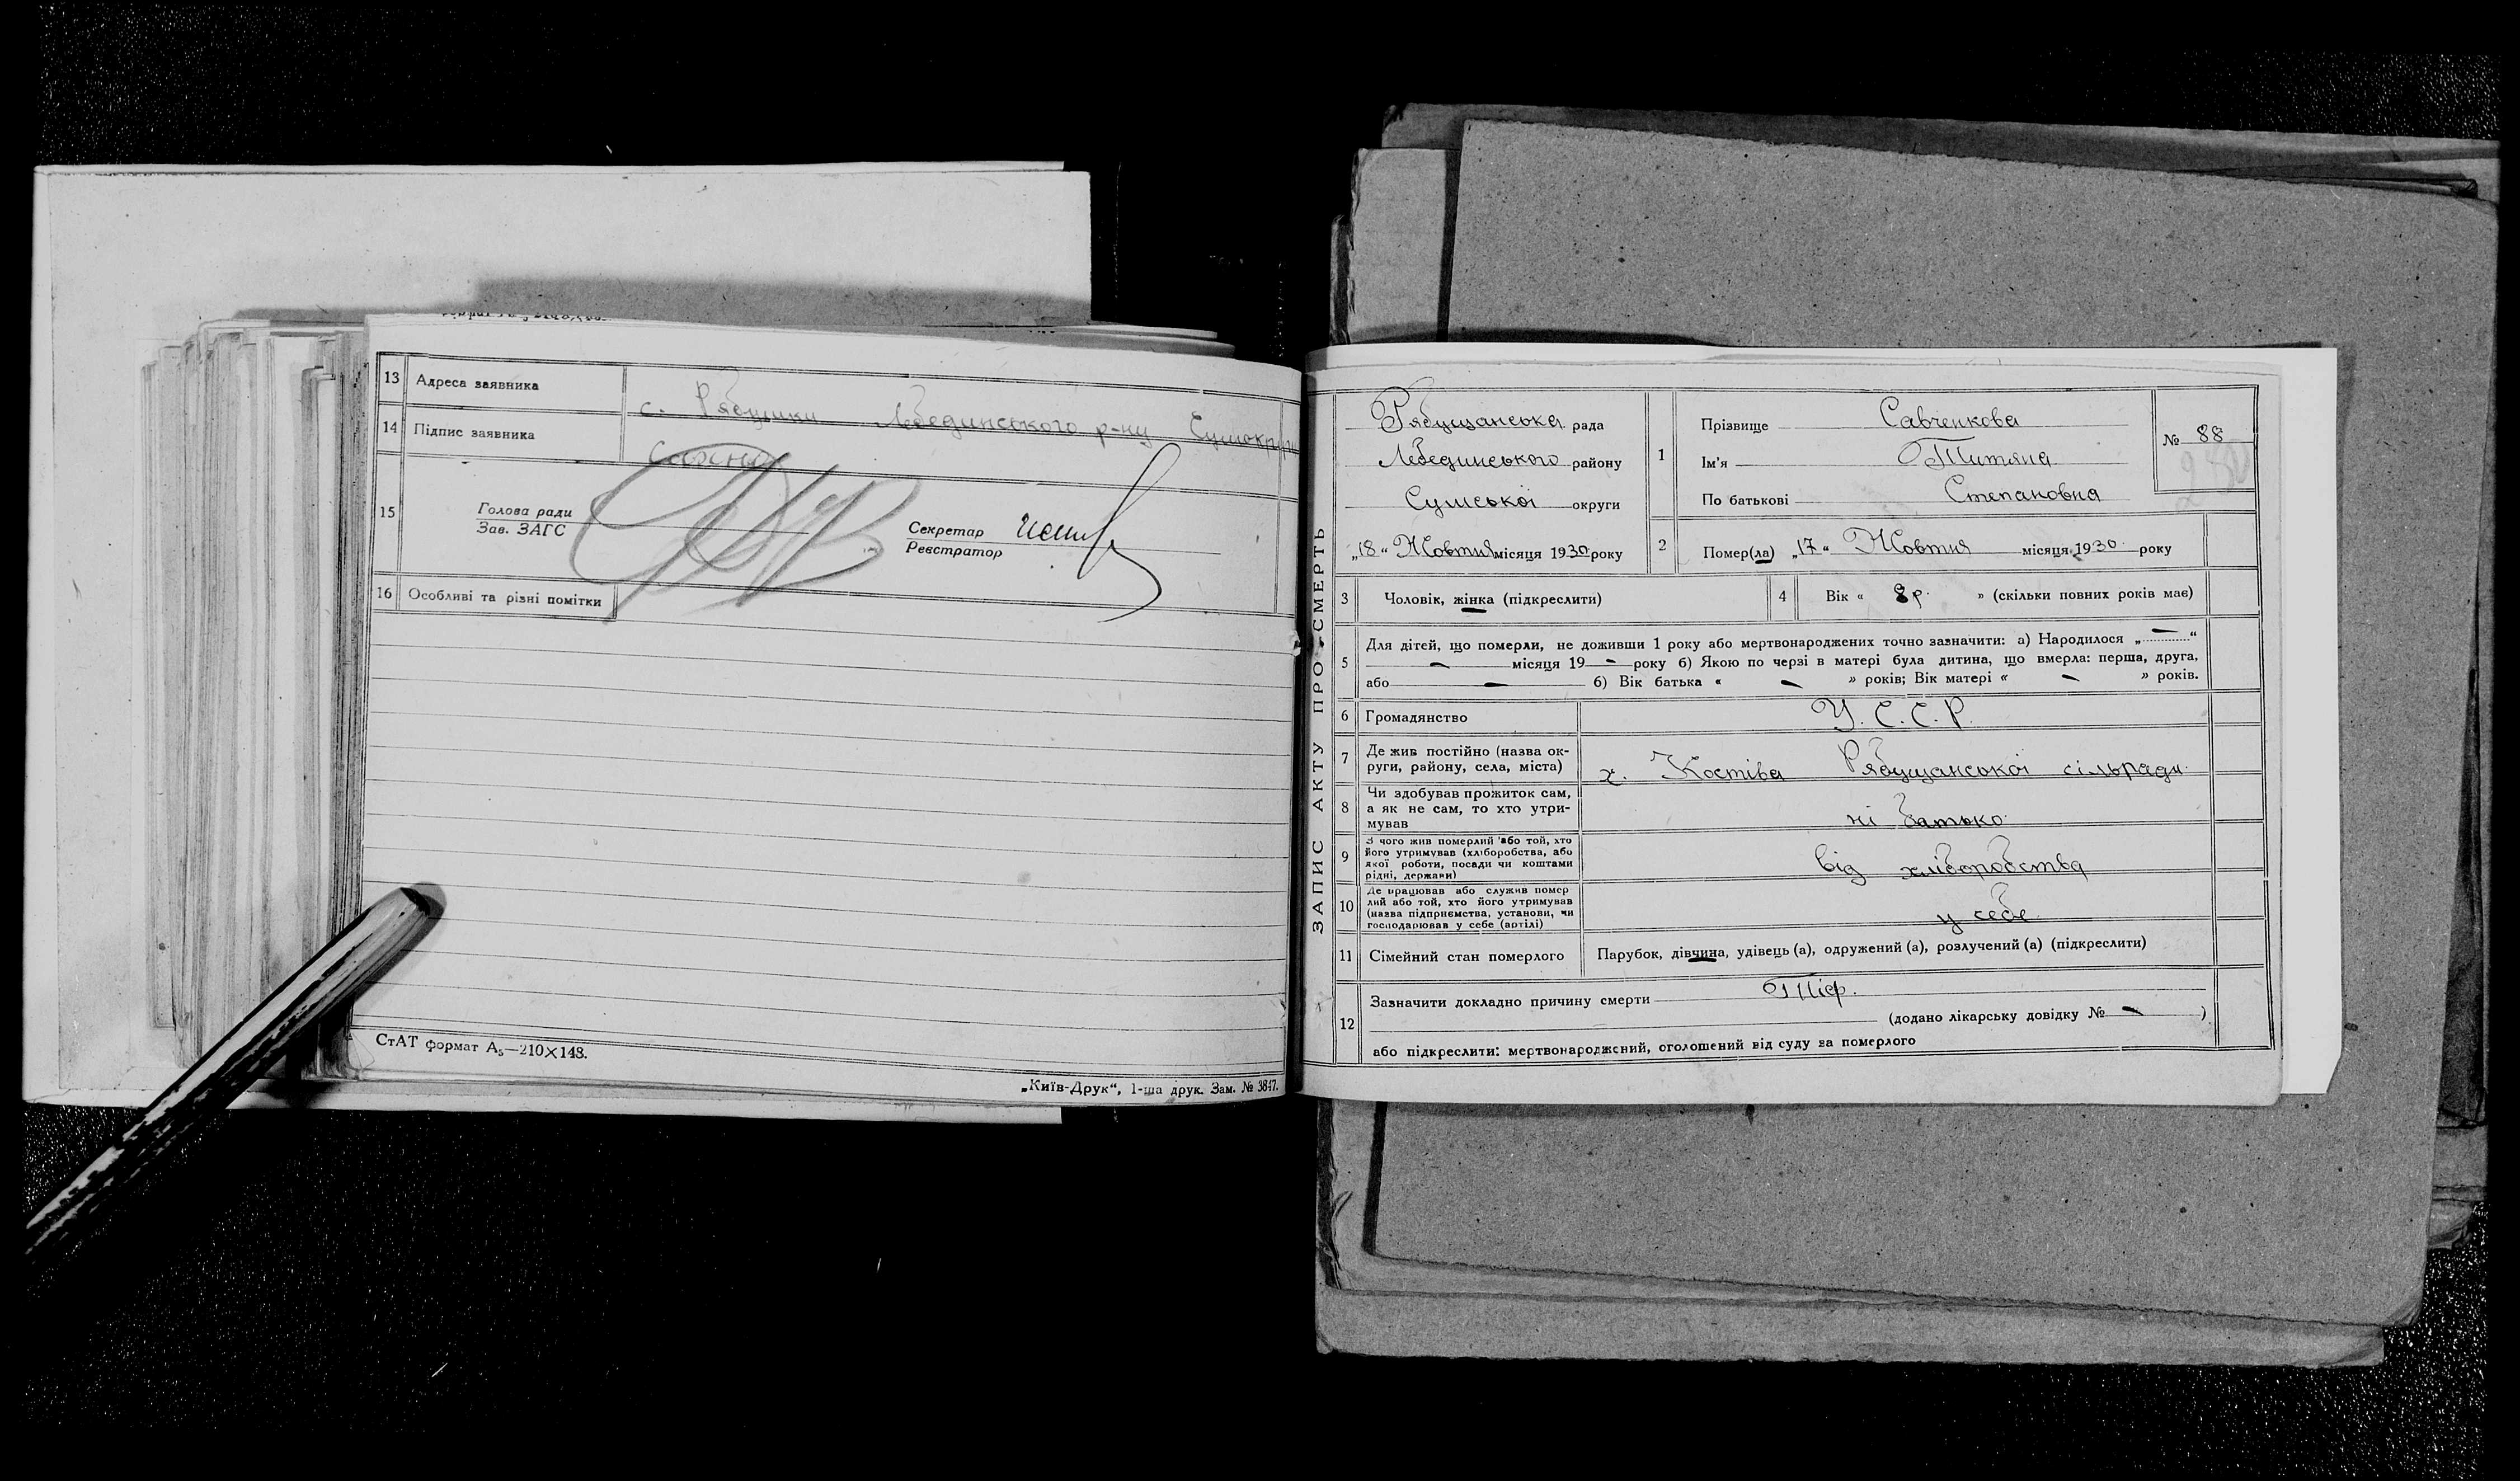 13 Адреса заявника с. Рябушки Лебединського р-ну Сумокруги
14 Підпис заявника
15 Голова ради
Зав. ЗАГС
Секретар
Реєстратор
16 Особливі та різні помітки
СтАТ формат А₅—210×148.
„Київ-Друк“, 1-ша друк. Зам. № 3847.
ЗАПИС АКТУ ПРО СМЕРТЬ
Рябущанська рада
Лебединського району
Сумської округи
„18“ Жовтня місяця 1930 року
1 Прізвище Савченкова
Ім'я Титяна
По батькові Степановна
№ 88
2 Помер(ла) „17“ Жовтня місяця 1930 року
3 Чоловік, жінка (підкреслити)
4 Вік « 8 р. » (скільки повних років має)
5 Для дітей, що померли, не доживши 1 року або мертвонароджених точно зазначити: а) Народилося „ — “
— місяця 19 — року б) Якою по черзі в матері була дитина, що вмерла: перша, друга,
або — б) Вік батька « — » років; Вік матері « — » років.
6 Громадянство У. С. С. Р.
7 Де жив постійно (назва ок-
руги, району, села, міста) х. Костіва Рябущанської сільради
8 Чи здобував прожиток сам,
а як не сам, то хто утри-
мував ні батько
9 З чого жив померлий або той, хто
його утримував (хліборобства, або
якої роботи, посади чи коштами
рідні, держави) від хліборобства
10 Де працював або служив помер
лий або той, хто його утримував
(назва підприємства, установи, чи
господарював у себе (артілі) у себе
11 Сімейний стан померлого Парубок, дівчина, удівець (а), одружений (а), розлучений (а) (підкреслити)
12 Зазначити докладно причину смерти Тіф.
(додано лікарську довідку № — )
або підкреслити: мертвонароджений, оголошений від суду за померлого